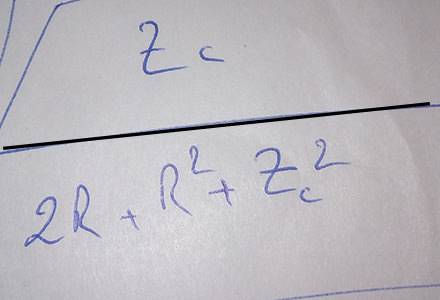 Zc
2R + R² + Zc²